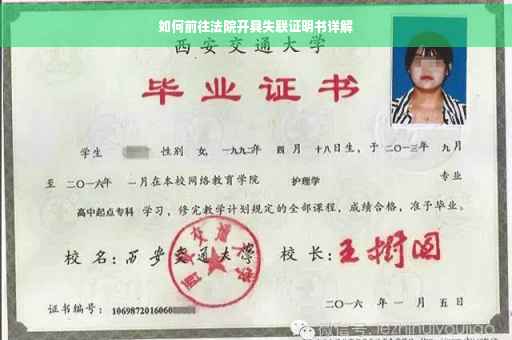 如何前往法院开具失联证明书详解
西安交通大学
毕业证书
学生 性别 女, 一九九二年 四 月 十八日生, 于 二〇一三年 九 月
至 二〇一六年 一月在本校网络教育学院 护理学 专业
高中起点专科 学习, 修完教学计划规定的全部课程, 成绩合格, 准予毕业。
校 名: 西安交通大学 校 长: 王树国
西安交通大学
证书编号: 1069872016060
二〇一六 年 一 月 五 日
微信号: jezhinuiyoujiao